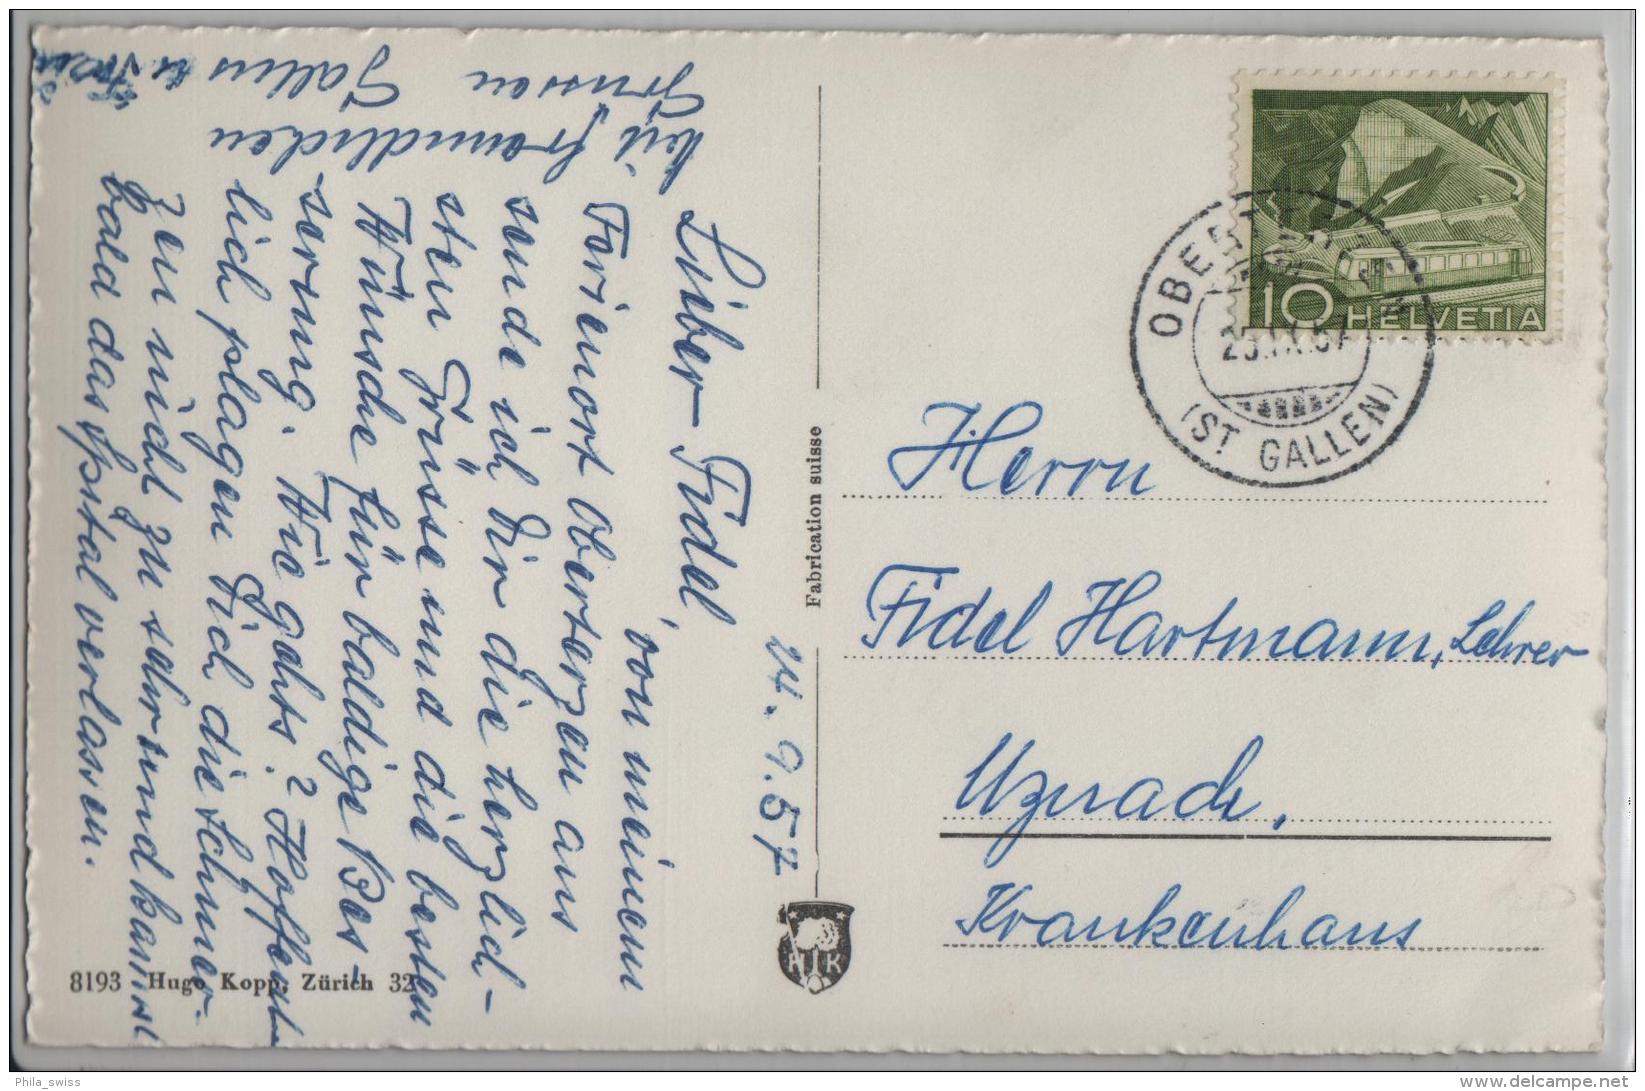 24. 9. 57
Lieber Fidel,
von meinem
Ferienort Oberterzen aus
sende ich Dir die herzlich-
sten Grüsse und die besten
Wünsche für baldige Bes-
serung. Wie gehts? Hoffent-
lich plagen Dich die Schmer-
zen nicht zu sehr und kannst
bald das Spital verlassen.
Mit freundlichen
Grüssen
Gallus
Fabrication suisse
8193 Hugo Kopp, Zürich 32
HK
10 HELVETIA
OBERTERZEN
25.IX.57
(ST GALLEN)
Herrn
Fidel Hartmann, Lehrer
Uznach,
Krankenhaus
Phila_swiss
delcampe.net